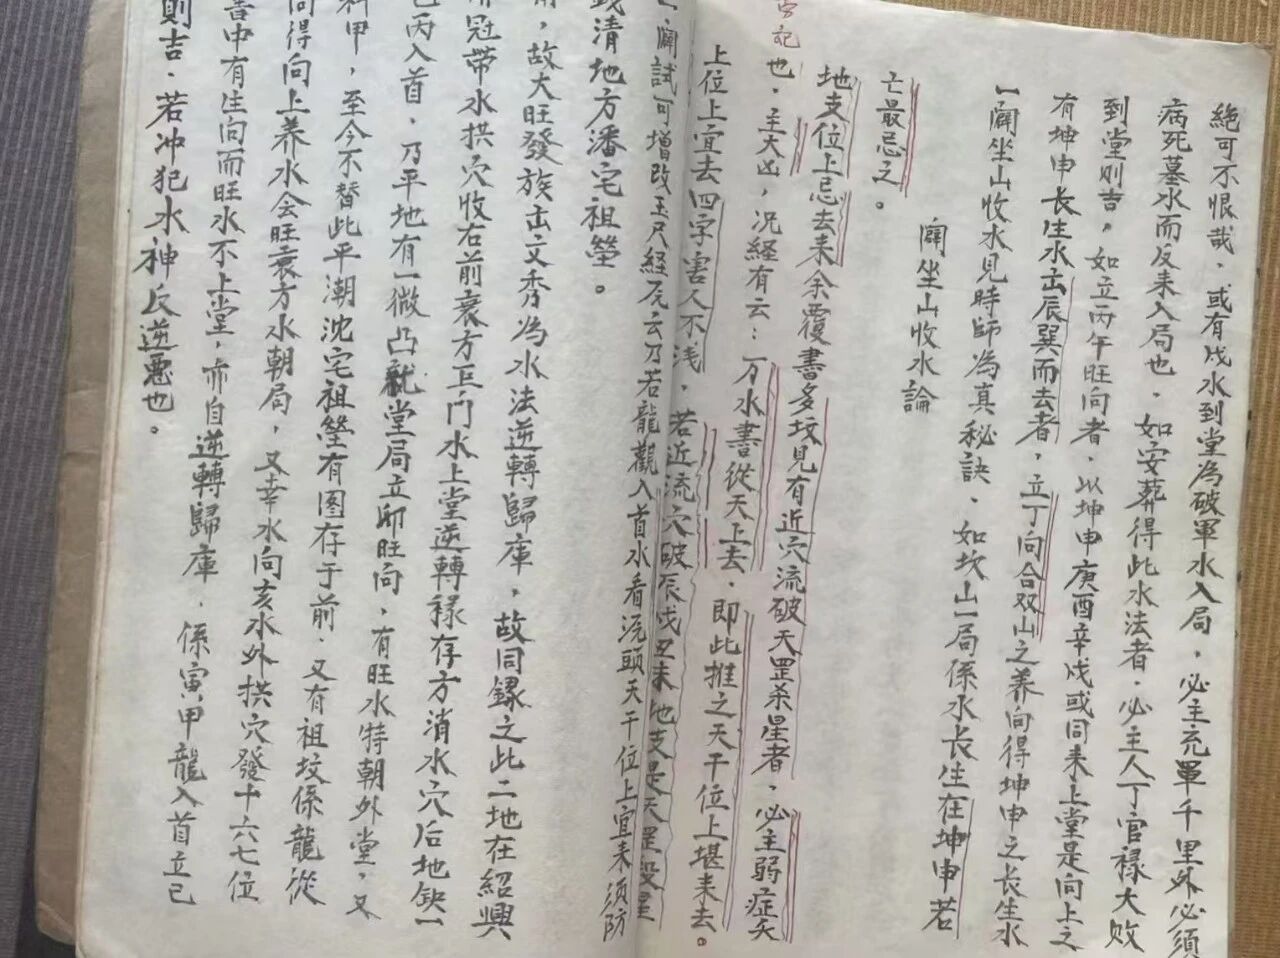 絶可不恨哉．或有戌水到堂為破軍水入局，必主充軍千里外必須
病死墓水而反耒入局也．如安葬得此水法者．必主人丁官祿大敗
到堂則吉。如立丙午旺向者．以坤申庚酉辛戌或同耒上堂是向上之
有坤申長生水出辰巽而去者，立丁向合双山之养向得坤申之長生水
一闢坐山收水見時師為真秘訣．如坎山一局係水長生在坤申若
闢坐山收水論
亡最忌之。
地支位上忌去耒余覆書多坟見有近穴流破天罡杀星者．必主弱症夭
也．主大凶，况経有云：万水書從天上去．即此推之天干位上堪耒去。
上位上宜去四字害人不浅．若近流穴破辰戌丑未地支是天罡殺星
闢試可增改玉尺経辰云乃若龍觀入首水看源頭天干位上宜耒須防
或清地方潘宅祖塋。
前，故大旺發族出文秀為水法逆轉歸庫，故同録之此二地在紹興
冠帶水拱穴收右前衰方巨門水上堂逆轉祿存方消水穴后地缺一
丙入首．乃平地有一微凸就堂局立卯旺向，有旺水特朝外堂，又
科甲，至今不替此平潮沈宅祖塋有图存于前．又有祖坟係龍從
向得向上养水会旺衰方水朝局，又幸水向亥水外拱穴發十六七位
書中有生向而旺水不上堂，亦自逆轉歸庫．係寅甲龍入首立已
則吉．若冲犯水神反逆悪也。